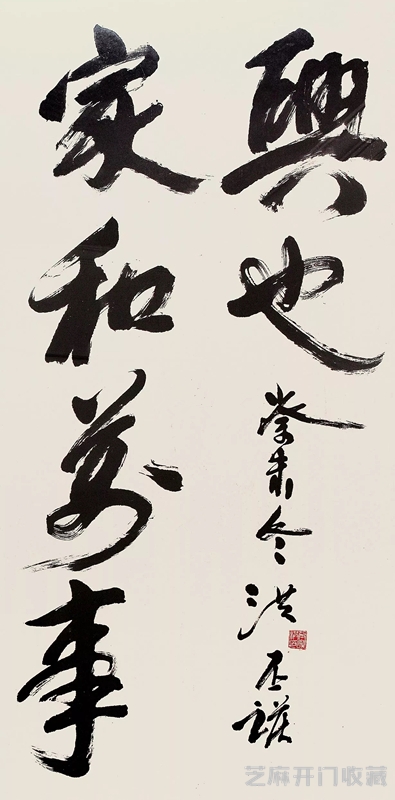 家和萬事
興也
癸未冬洪丕謨
芝麻开门收藏